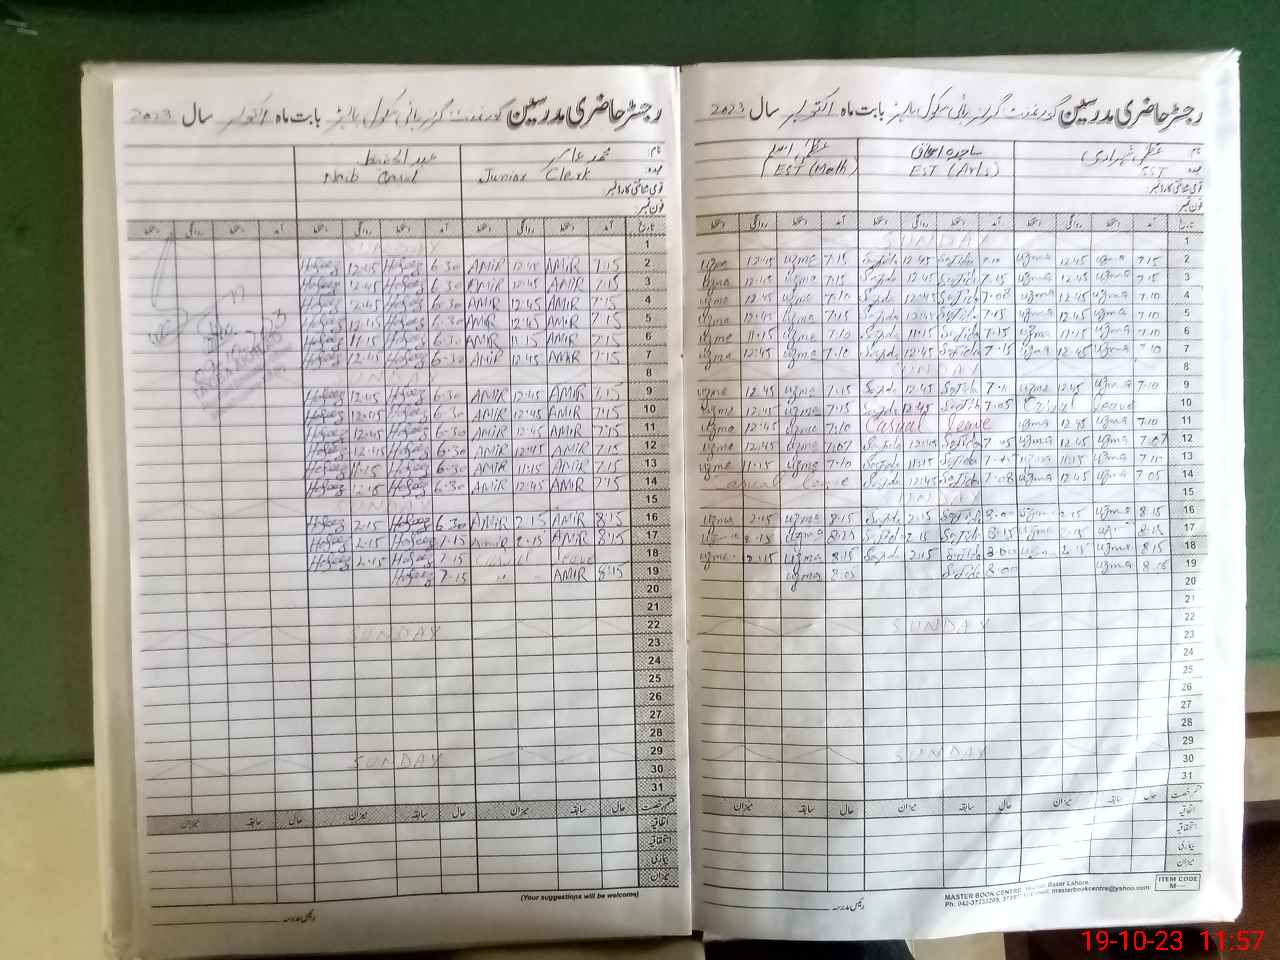 رجسٹر حاضری مدرسین گورنمنٹ گرلز ہائی سکول بابت ماہ اکتوبر سال 2023
نام محمد عامر عبدالحفیظ
عہدہ Junior Clerk Naib
قومی شناختی کارڈ نمبر
فون نمبر
تاریخ آمد دستخط روانگی دستخط آمد دستخط روانگی دستخط آمد دستخط روانگی دستخط
1 SUNDAY
2 7.15 AMIR 12:45 AMIR 6.30 Hafeez 12:45 Hafeez
3 7.15 AMIR 12:45 AMIR 6.30 Hafeez 12:45 Hafeez
4 7.15 AMIR 12:45 AMIR 6.30 Hafeez 12:45 Hafeez
5 7.15 AMIR 12:45 AMIR 6.30 Hafeez 12:45 Hafeez
6 7.15 AMIR 11.15 AMIR 6.30 Hafeez 11.15 Hafeez
7 7.15 AMIR 12:45 AMIR 6.30 Hafeez 12:45 Hafeez
8 SUNDAY
9 7.15 AMIR 12:45 AMIR 6.30 Hafeez 12:45 Hafeez
10 7.15 AMIR 12:45 AMIR 6.30 Hafeez 12:45 Hafeez
11 7.15 AMIR 12:45 AMIR 6.30 Hafeez 12:45 Hafeez
12 7.15 AMIR 12:45 AMIR 6.30 Hafeez 12:45 Hafeez
13 7.15 AMIR 11.15 AMIR 6.30 Hafeez 11.15 Hafeez
14 7.15 AMIR 12:45 AMIR 6.30 Hafeez Hafeez
15 SUNDAY
16 8:15 AMIR 2.15 AMIR 6.30 Hafeez 2.15 Hafeez
17 8:15 AMIR 2.15 AMIR 7.15 Hafeez 2.15 Hafeez
18 Casual leave 7.15 Hafeez 2.15 Hafeez
19 8:15 AMIR 7.15 Hafeez
20
21
22 SUNDAY
23
24
25
26
27
28
29 SUNDAY
30
31
قسم رخصت حال سابقہ میزان حال سابقہ میزان حال سابقہ میزان
اتفاقیہ
استحقاقیہ
بیماری
میزان
(Your suggestions will be welcome)
رئیس مدرسہ
رجسٹر حاضری مدرسین گورنمنٹ گرلز ہائی سکول بابت ماہ اکتوبر سال 2023
نام عظمیٰ شہزادی ساجدہ اسحاق عظمیٰ اسلم
عہدہ SST EST (Arts) EST (Math)
قومی شناختی کارڈ نمبر
فون نمبر
تاریخ آمد دستخط روانگی دستخط آمد دستخط روانگی دستخط آمد دستخط روانگی دستخط
1 SUNDAY
2 7.15 uzma 12.45 uzma 7.10 Sajida 12.45 Sajida 7.15 uzma 12.45 uzma
3 7.15 uzma 12.45 uzma 7.15 Sajida 12.45 Sajida 7.15 uzma 12.45 uzma
4 7.10 uzma 12.45 uzma 7.08 Sajida 12.45 Sajida 7.10 uzma 12.45 uzma
5 7.10 uzma 12.45 uzma 7.15 Sajida 12.45 Sajida 7.15 uzma 12.45 uzma
6 7.10 uzma 11.15 uzma 7.15 Sajida 11.15 Sajida 7.10 uzma 11.15 uzma
7 7.10 uzma 12.45 uzma 7.15 Sajida 12.45 Sajida 7.10 uzma 12.45 uzma
8 SUNDAY
9 7.10 uzma 12.45 uzma Sajida 12.45 Sajida 7.15 uzma 12.45 uzma
10 Casual leave 7.05 Sajida 12.45 Sajida 7.15 uzma 12.45 uzma
11 7.10 uzma 12.45 uzma Casual leave 7.10 uzma 12.45 uzma
12 7.07 uzma 12.45 uzma Sajida 12.45 Sajida 7.07 uzma 12.45 uzma
13 7.10 uzma 11.15 uzma Sajida 11.15 Sajida 7.10 uzma 11.15 uzma
14 7.05 uzma 12.45 uzma 7.08 Sajida 12.45 Sajida Casual leave
15 SUNDAY
16 8.15 uzma 2.15 uzma 8.00 Sajida 2.15 Sajida 8.15 uzma 2.15 uzma
17 8.15 2.15 uzma 8.15 Sajida 2.15 Sajida uzma
18 8.15 uzma 2.15 uzma 8.00 Sajida 2.15 Sajida 8.15 uzma 2.15 uzma
19 uzma 8.00 Sajida 8.05 uzma
20
21
22 SUNDAY
23
24
25
26
27
28
29 SUNDAY
30
31
قسم رخصت حال سابقہ میزان حال سابقہ میزان حال سابقہ میزان
اتفاقیہ
استحقاقیہ
بیماری
میزان
MASTER BOOK CENTRE, Bazar Lahore.
Ph: masterbookcentre@yahoo.com
ITEM CODE
M---
رئیس مدرسہ
19-10-23 11:57